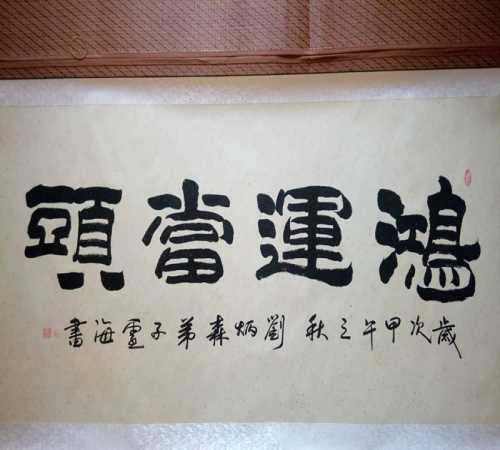 鴻運當頭
歲次甲午之秋 劉炳森弟子盧海書